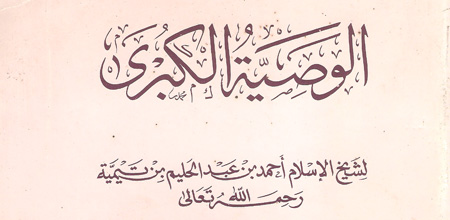 الوصية الكبرى
لشيخ الإسلام أحمد بن عبد الحليم بن تيمية
رحمه الله تعالى